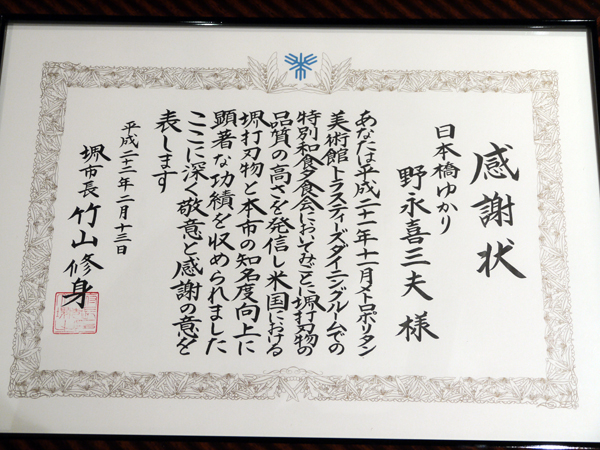 感謝状
日本橋ゆかり
野永喜三夫 様
あなたは平成二十一年十一月メトロポリタン
美術館トラスティーズダイニングルームでの
特別和食夕食会においてみごとに堺打刃物の
品質の高さを発信し米国における
堺打刃物と本市の知名度向上に
顕著な功績を収められました
ここに深く敬意と感謝の意を
表します
平成二十二年二月十三日
堺市長 竹山修身